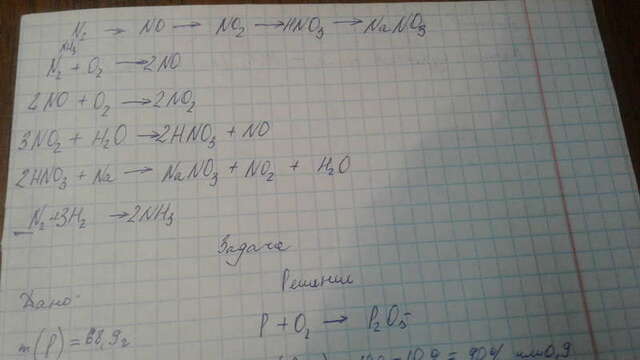 N₂ → NO → NO₂ → HNO₃ → NaNO₃
NH₃
N₂ + O₂ → 2NO
2NO + O₂ → 2NO₂
3NO₂ + H₂O → 2HNO₃ + NO
2HNO₃ + Na → NaNO₃ + NO₂ + H₂O
N₂ + 3H₂ → 2NH₃
Задача
Решение
Дано:
P + O₂ → P₂O₅
m(P) = 68,9г